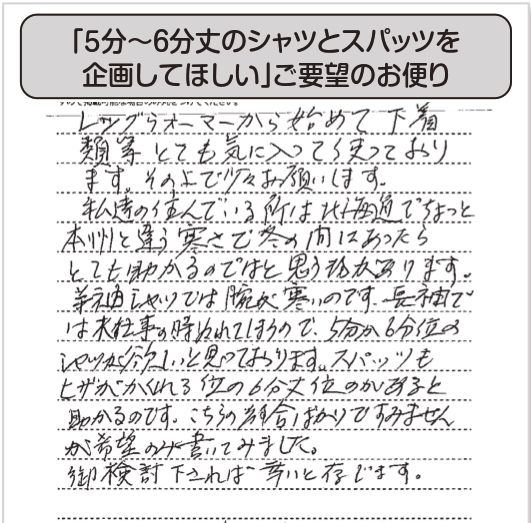 「5分～6分丈のシャツとスパッツを
企画してほしい」ご要望のお便り
レッグウォーマーから始めて下着
類等とても気に入って使っており
ます。その上で少々お願いします。
私達の住んでいる所は北海道でちょっと
本州と違う寒さで冬の間にあったら
とても助かるのではと思う物があります。
半袖シャツでは腕が寒いのです。長袖で
は水仕事の時ぬれてしまうので、5分か6分位の
シャツが欲しいと思っております。スパッツも
ヒザがかくれる位の6分丈位のがあると
助かるのです。こちらの都合ばかりですみません
が希望のみ書いてみました。
御検討下されば幸いと存じます。